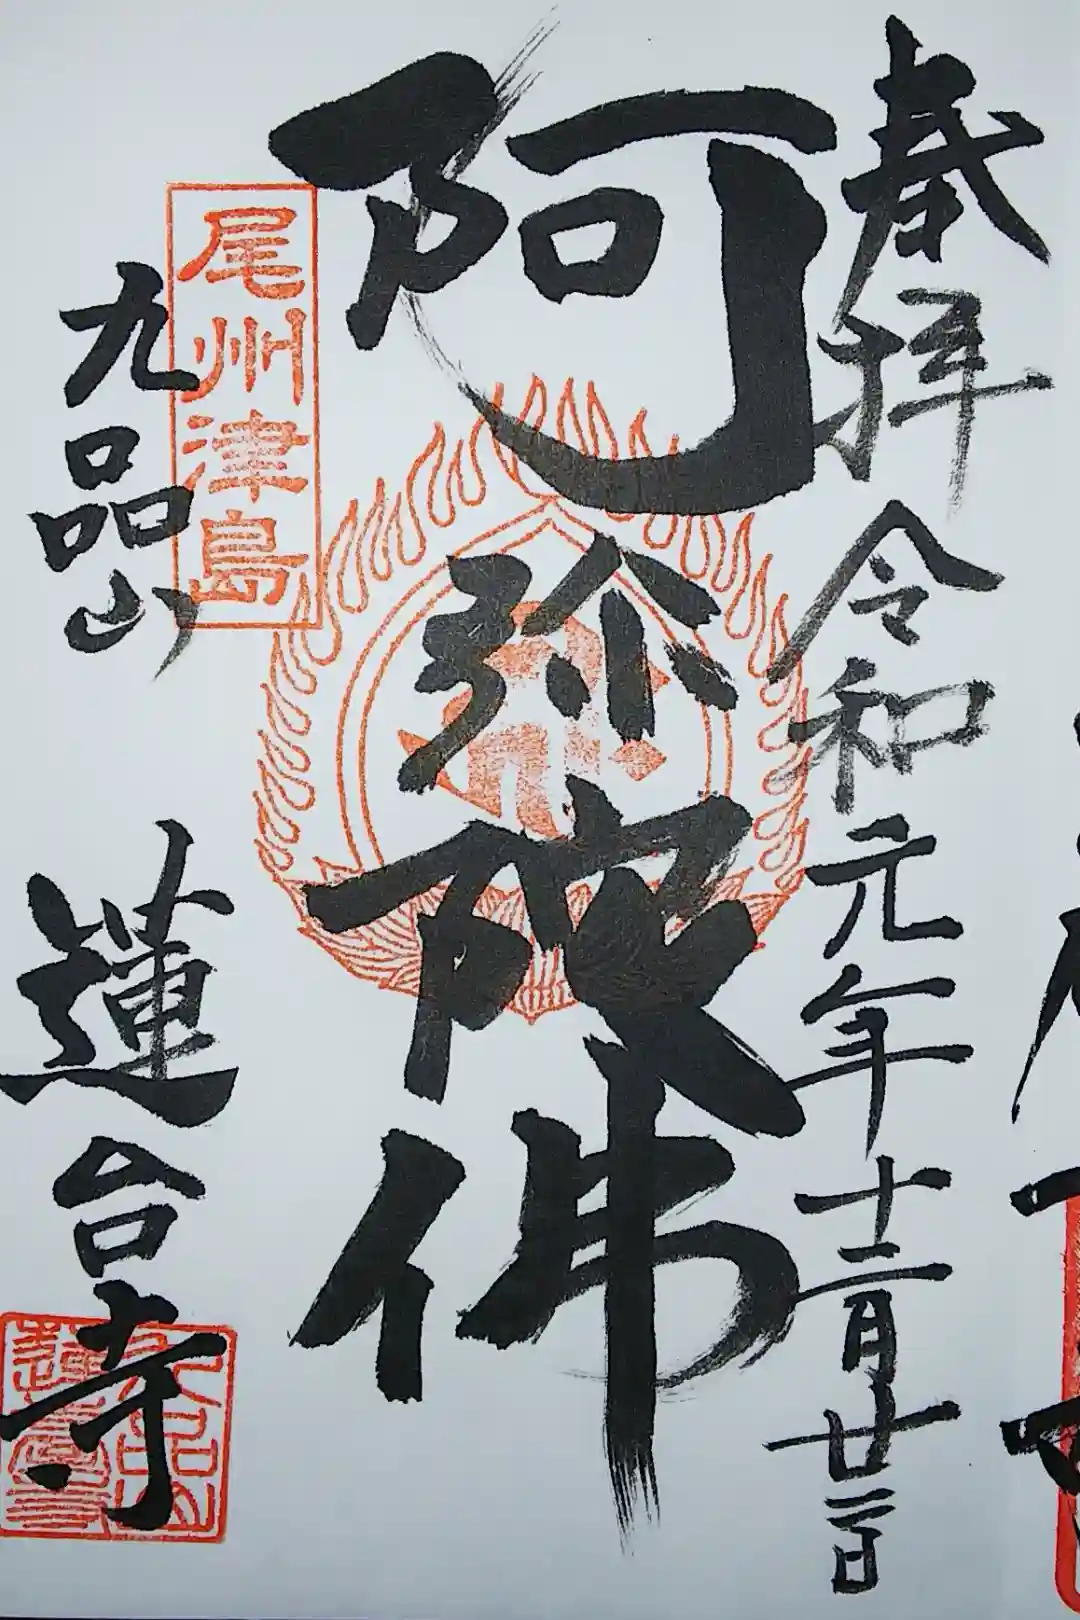 奉拝 令和元年十二月廿二日
阿弥陀佛
尾州津島
九品山 蓮台寺